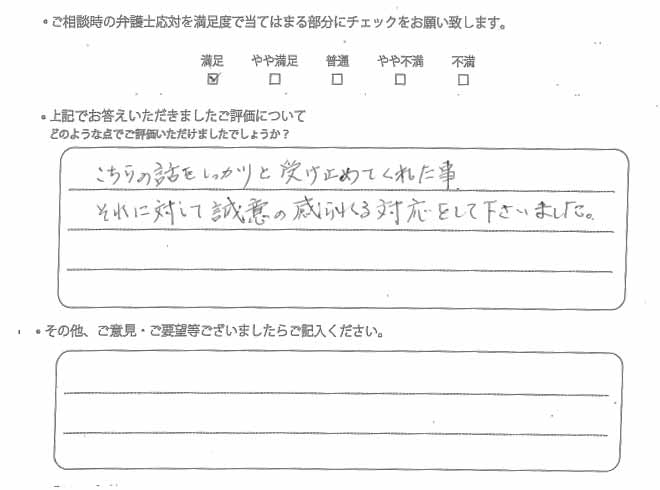 • ご相談時の弁護士応対を満足度で当てはまる部分にチェックをお願い致します。
満足 やや満足 普通 やや不満 不満
☑ ☐ ☐ ☐ ☐
• 上記でお答えいただきましたご評価について
どのような点でご評価いただけましたでしょうか?
こちらの話をしっかりと受け止めてくれた事
それに対して誠意の感られる対応をして下さいました。
• その他、ご意見・ご要望等ございましたらご記入ください。